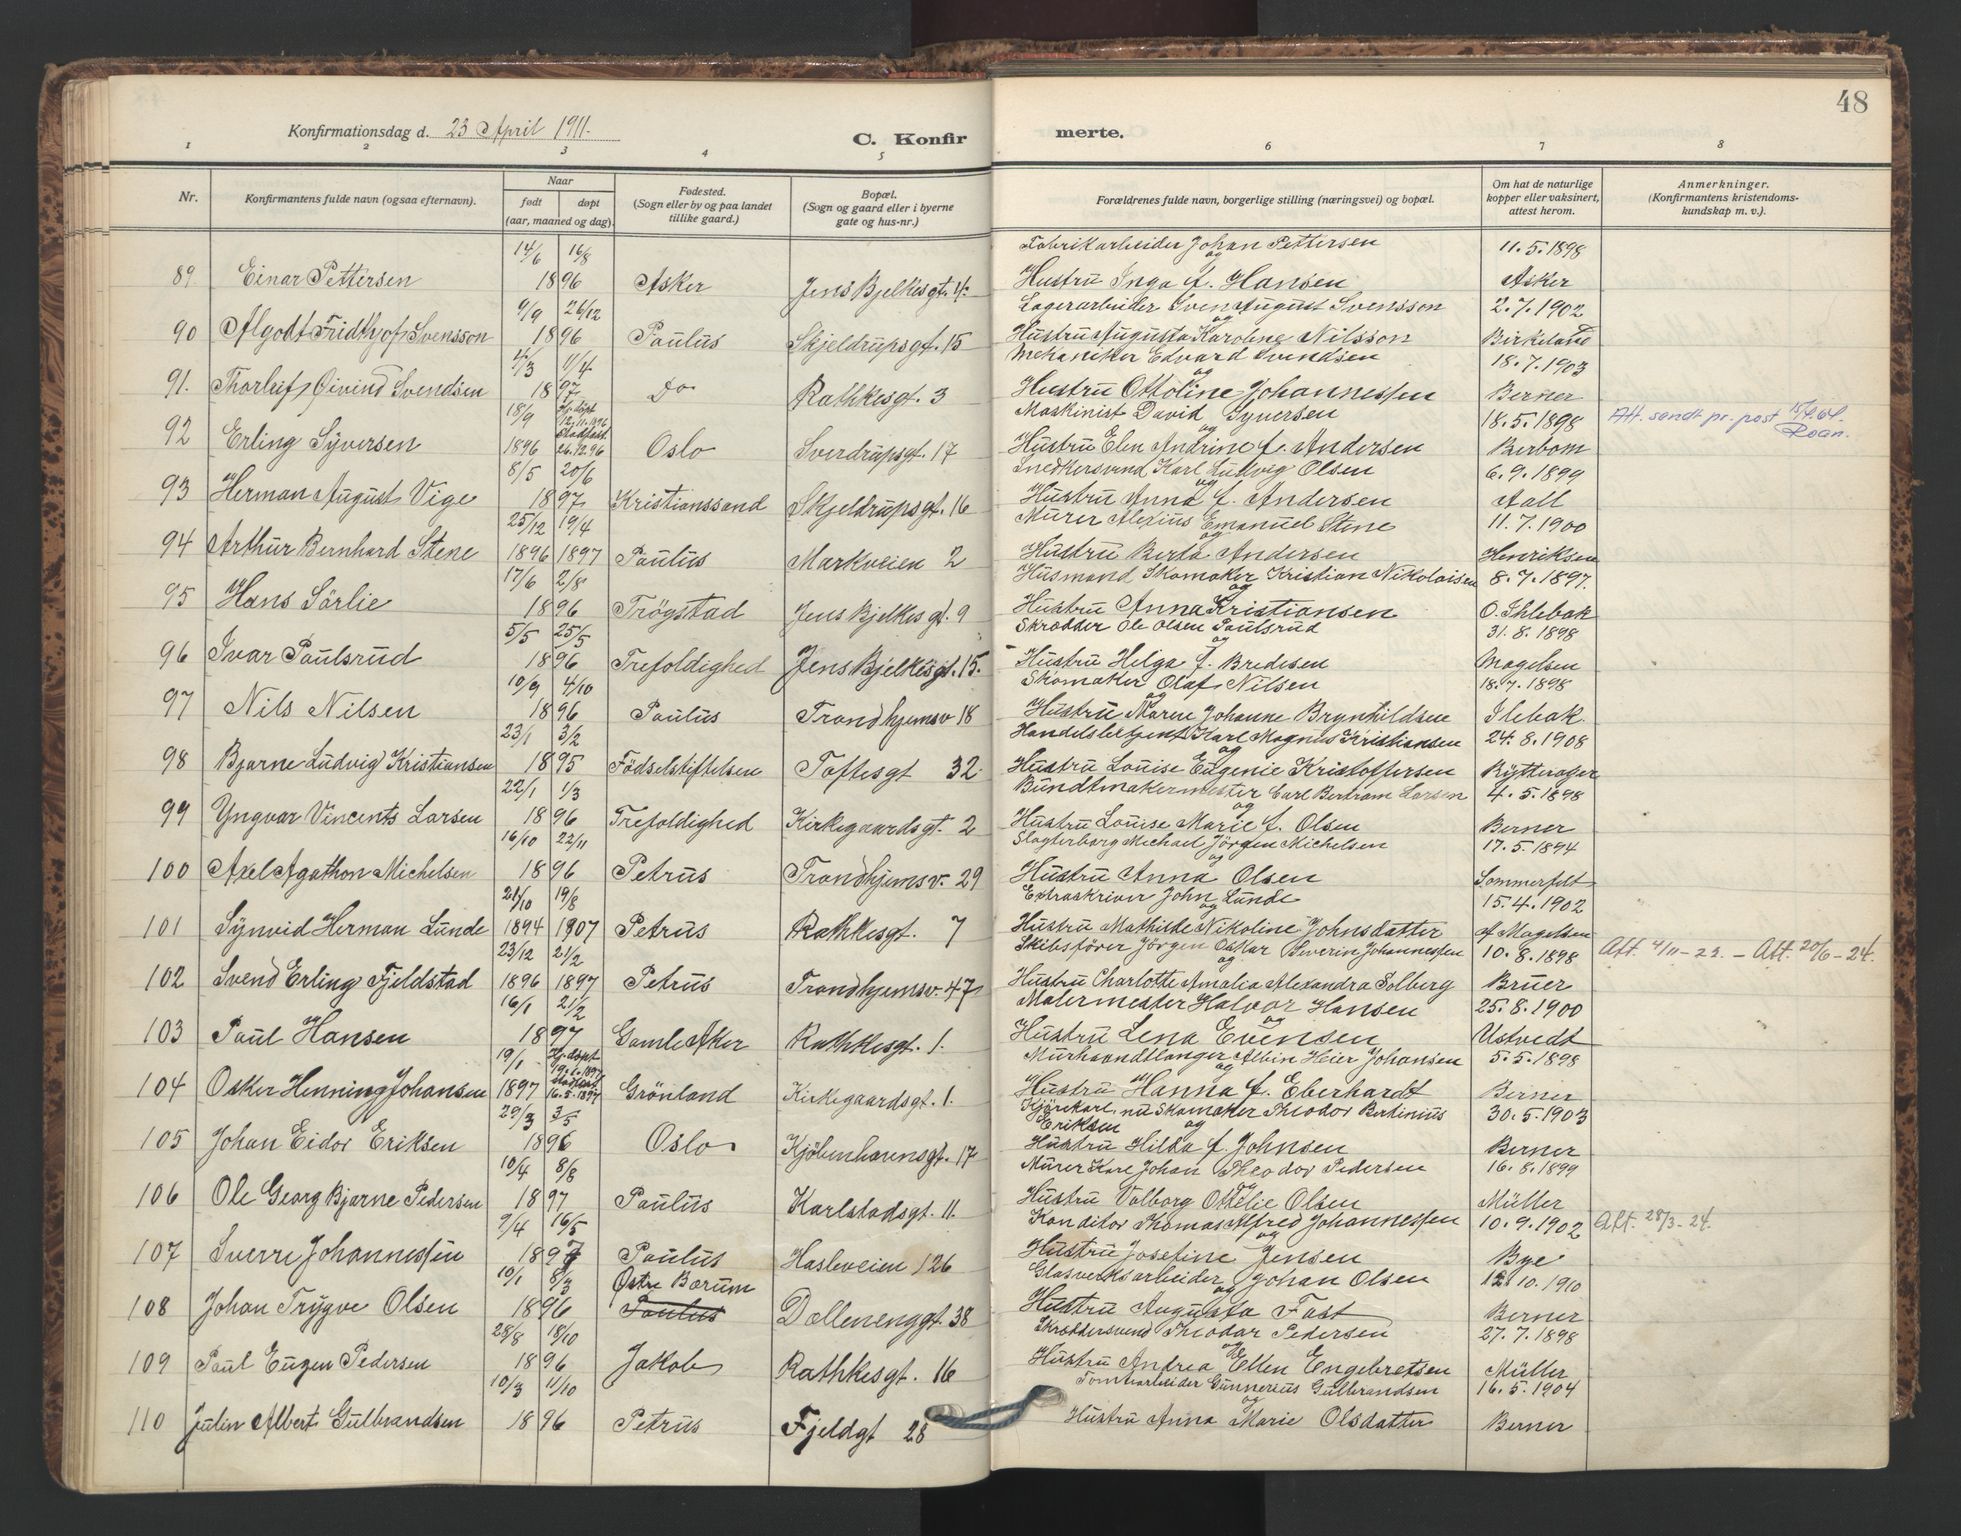 48
Konfirmationsdag d. 23 April 1911.
C. Konfirmerte.
1 2 3 4 5 6 7 8
Nr.
Konfirmantens fulde navn (ogsaa efternavn).
Naar
født døpt
(aar, maaned og dag).
Fødested.
(Sogn eller by og paa landet
tillike gaard.)
Bopæl.
(Sogn og gaard eller i byerne
gate og hus-nr.)
Forældrenes fulde navn, borgerlige stilling (næringsvei) og bopæl.
Om hat de naturlige
kopper eller vaksinert,
attest herom.
Anmerkninger.
(Konfirmantens kristendoms-
kundskap m. v.).
14/6 16/8 Fabrikarbeider Johan Pettersen 11.5.1898
og
89 Einar Pettersen 1896 Asker Jens Bjelkesgt. 4. Hustru Inga f. Hansen Asker
9/9 26/12 Lagerarbeider Sven August Svensson 2.7.1902
og
90 Algodt Fridthjof Svensson 1896 Paulus Skjeldrupsgt. 15 Hustru Augusta Karoline Nilsson Birkeland
4/3 1/4 Mekaniker Edvard Svendsen 18.7.1903
og
91. Thorleif Öivind Svendsen 1897 Do Rathkesgt. 3 Hustru Ottoline Johannessen Berner
18/9 Hj. döpt 12.11.1896 Maskinist David Syversen 18.5.1898 Att. sendt pr. post
og
92 Erling Syversen 1896 Stadfæst. 26.12.96 Oslo Sverdrupsgt. 17 Hustru Elen Andrine f. Andersen Berbom
8/5 20/6 Snedkersvend Karl Ludvig Olsen 6.9.1899
og
93 Herman August Vige 1897 Kristianssand Skjeldrupsgt. 16 Hustru Anna f. Andersen Aall
25/12 19/4 Murer Alexius Emanuel Stene 11.7.1900
og
94 Arthur Bernhard Stene 1896 1897 Paulus Markveien 2 Hustru Berta Andersen Henriksen
17/6 2/8 Husmand Skomaker Kristian Nikolaisen 8.7.1897.
og
95 Hans Sörlie 1896 Trögstad Jens Bjelkesgt. 9 Hustru Anna Kristiansen O. Ihlebak
5/5 25/5 Skrædder Ole Olsen Paulsrud 31.8.1898
og
96 Ivar Paulsrud 1896 Trefoldighed Jens Bjelkesgt. 15. Hustru Helga f. Bredesen Magelsen
10/9 4/10 Skomaker Olaf Nilsen 18.7.1898
og
97 Nils Nilsen 1896 Paulus Trondhjemsv 18 Hustru Maren Johanne Brynhildsen Ilebak
23/1 3/2 Handelsbetjent Karl Magnus Kristiansen 24.8.1908
og
98 Bjarne Ludvig Kristiansen 1895 Födselstiftelsen Toftesgt 32. Hustru Louise Eugenie Kristoffersen Rytterager
22/1 1/3 Bundtmakermester Carl Bertram Larsen 4.5.1898
og
99 Yngvar Vincents Larsen 1896 Trefoldighed Kirkegaardsgt. 2 Hustru Louise Marie f. Olsen Berner
16/10 22/11 Slagterborg Michael Jörgen Michelsen 17.5.1894
og
100 Axel Agathon Michelsen 1896 Petrus Trondhjemsv. 29 Hustru Anna Olsen Sommerfelt
21/10 19/8 Extraskriver John Lunde 15.4.1902
og
101 Synvid Herman Lunde 1894 1907 Petrus Rathkesgt. 7 Hustru Mathilde Nikoline Johnsdatter af Magelsen
23/12 21/2 Skibsförer Jörgen Oskar Severin Johannessen 10.8.1898 Att. 4/11-23. - Att. 20/6-24.
og
102 Svend Erling Fjeldstad 1896 1897 Petrus Trondhjemsv. 47 Hustru Charlotte Amalia Alexandra Solberg Bruer
16/1 21/2 Malermester Halvor Hansen 25.8.1900
og
103 Paul Hansen 1897 Gamle Aker Rathkesgt. 1. Hustru Lena Evensen Ustvedt
19/1 Hj. döpt 19.1.1897 Murhaandlanger Albin Heier Johansen 5.5.1898
og
104 Oskar Henning Johansen 1897 Stadfæst. 16.5.1897 Grönland Kirkegaardsgt. 1. Hustru Hanna f. Eberhardt Berner
29/3 3/5 Kjörekarl, nu Skomaker Theodor Bertinius 30.5.1903
Eriksen og
105 Johan Eidor Eriksen 1896 Oslo Kjöbenhavnsgt. 17 Hustru Hilda f. Johnsen Berner
10/4 8/8 Murer Karl Johan Theodor Pedersen 16.8.1899
og
106 Ole Georg Bjarne Pedersen 1897 Paulus Karlstadsgt. 11. Hustru Valborg Ottelie Olsen Müller
9/4 16/5 Konditor Thomas Alfred Johannessen 10.9.1902 Att. 28/3-24.
og
107 Sverre Johannessen 1897 Paulus Hasleveien 126 Hustru Josefine Jensen Bye
10/1 8/3 Östre Bærum Glasverksarbeider Johan Olsen 12.10.1910
og
108 Johan Trygve Olsen 1896 Paulus Dælenenggt. 38 Hustru Augusta Fast Berner
28/8 18/10 Skræddersvend Theodor Pedersen 27.7.1898
og
109 Paul Eugen Pedersen 1896 Jakob Rathkesgt. 16 Hustru Andrea Ellen Engebretsen Müller
10/3 11/10 Tomtearbeider Gunnerius Gulbrandsen 16.5.1904
og
110 Julin Albert Gulbrandsen 1896 Petrus Fjeldgt 28 Hustru Anna Marie Olsdatter Berner